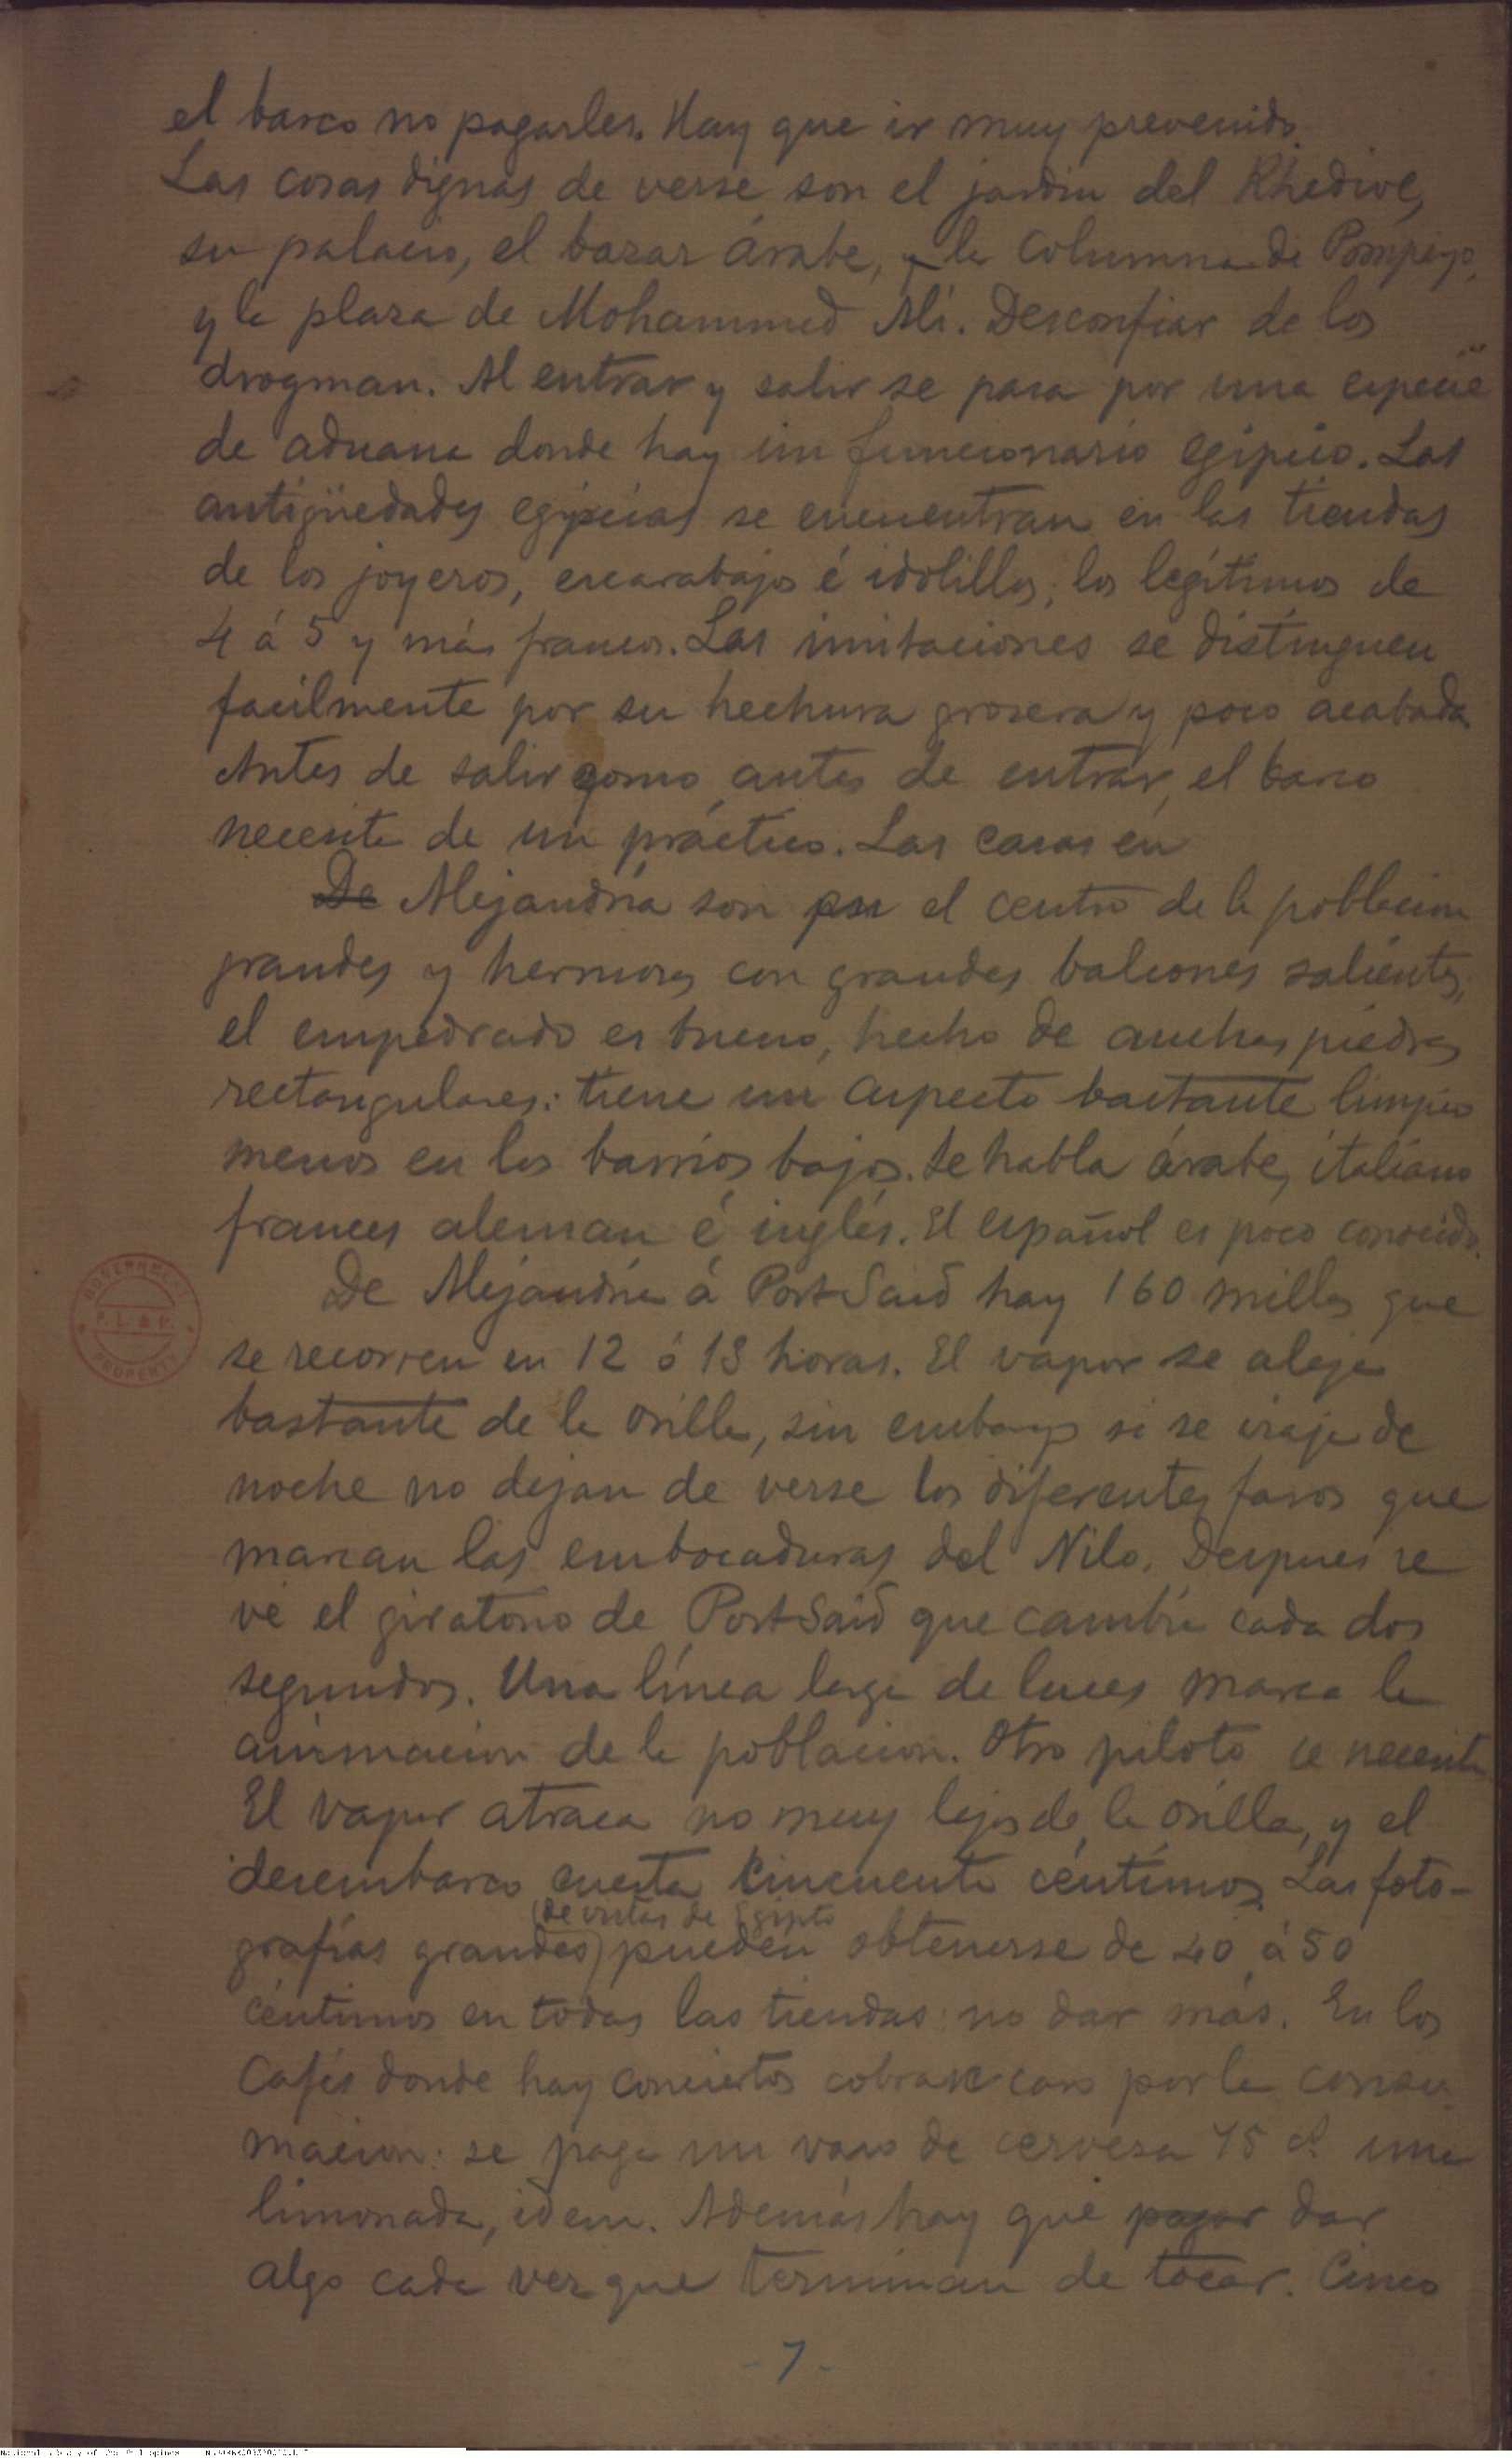 el barco no pagarles. Hay que ir muy prevenido.
Las cosas dignas de verse son el jardin del Khedive,
su palacio, el bazar árabe, y la Columna de Pompeyo,
y la plaza de Mohammed Ali. Desconfiar de los
drogman. Al entrar y salir se pasa por una especie
de aduana donde hay un funcionario egipcio. Las
antigüedades egipcias se encuentran en las tiendas
de los joyeros, escarabajos é idolillos; los legítimos de
4 á 5 y más francos. Las imitaciones se distinguen
facilmente por su hechura grosera y poco acabada
Antes de salir como antes de entrar, el barco
necesita de un práctico. Las casas en
De Alejandria son en el centro de la poblacion
grandes y hermosas con grandes balcones salientes;
el empedrado es bueno, hecho de anchas piedras
rectangulares: tiene un aspecto bastante limpio
menos en los barrios bajos. Se habla árabe, italiano
frances aleman é inglés. El español es poco conocido.
De Alejandria á Port Said hay 160 millas que
se recorren en 12 ó 13 horas. El vapor se aleja
bastante de la orilla, sin embargo si se viaja de
noche no dejan de verse los diferentes faros que
marcan las embocaduras del Nilo. Despues se
vé el giratorio de Port Said que cambia cada dos
segundos. Una línea larga de luces marca la
animacion de la poblacion. Otro piloto se necesita
El vapor atraca no muy lejos de la orilla, y el
desembarco cuesta cincuenta céntimos. Las foto-
(de vistas de Egipto
grafías grandes) pueden obtenerse de 40 á 50
céntimos en todas las tiendas: no dar más. En los
Cafés donde hay conciertos cobrase caro por la consu-
macion: se paga un vaso de cerveza 75 cs. una
limonada, idem. Además hay que pagar dar
algo cada vez que terminan de tocar. Cinco
- 7 -
GOVERNMENT
P. L. & P.
PROPERTY
National Library of the Philippines